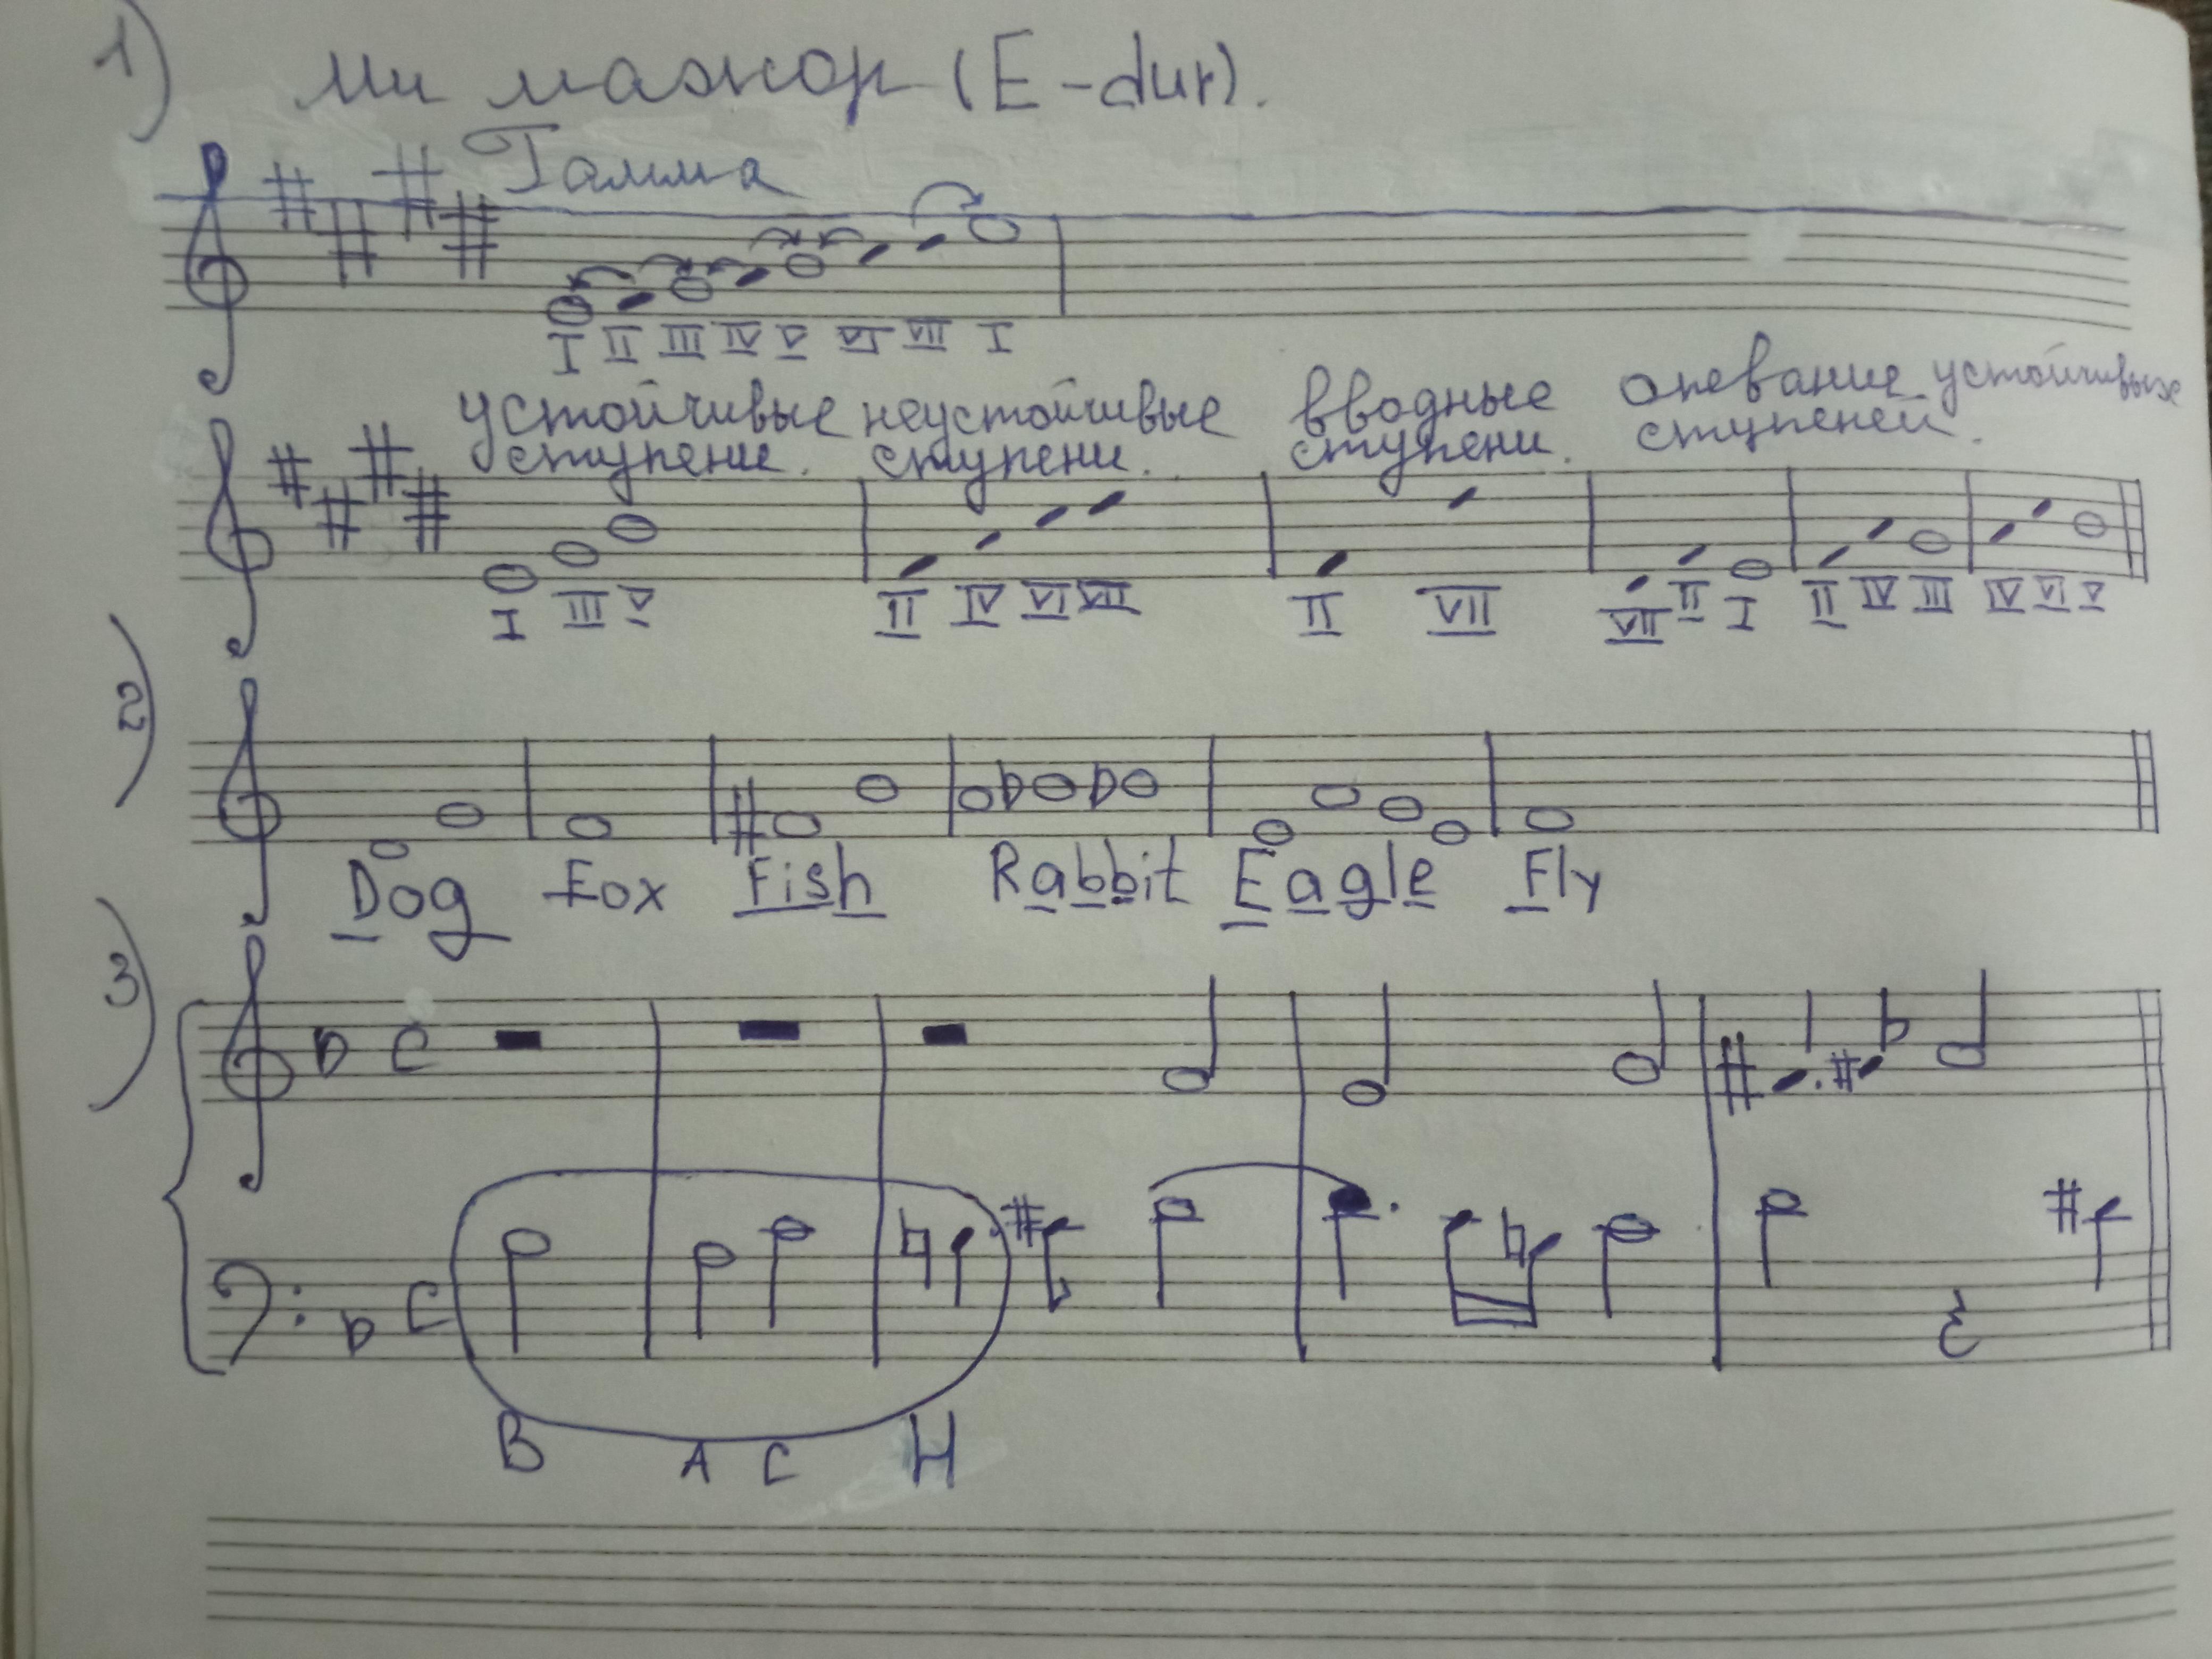 1) Ми мажор (E-dur).
Гамма
I II III IV V VI VII I
устойчивые ступени. неустойчивые ступени. вводные ступени. опевание устойчивых ступеней.
I III V II IV VI VII II VII VII II I II IV III IV VI V
2)
Dog Fox Fish Rabbit Eagle Fly
3)
C
C
B A C H